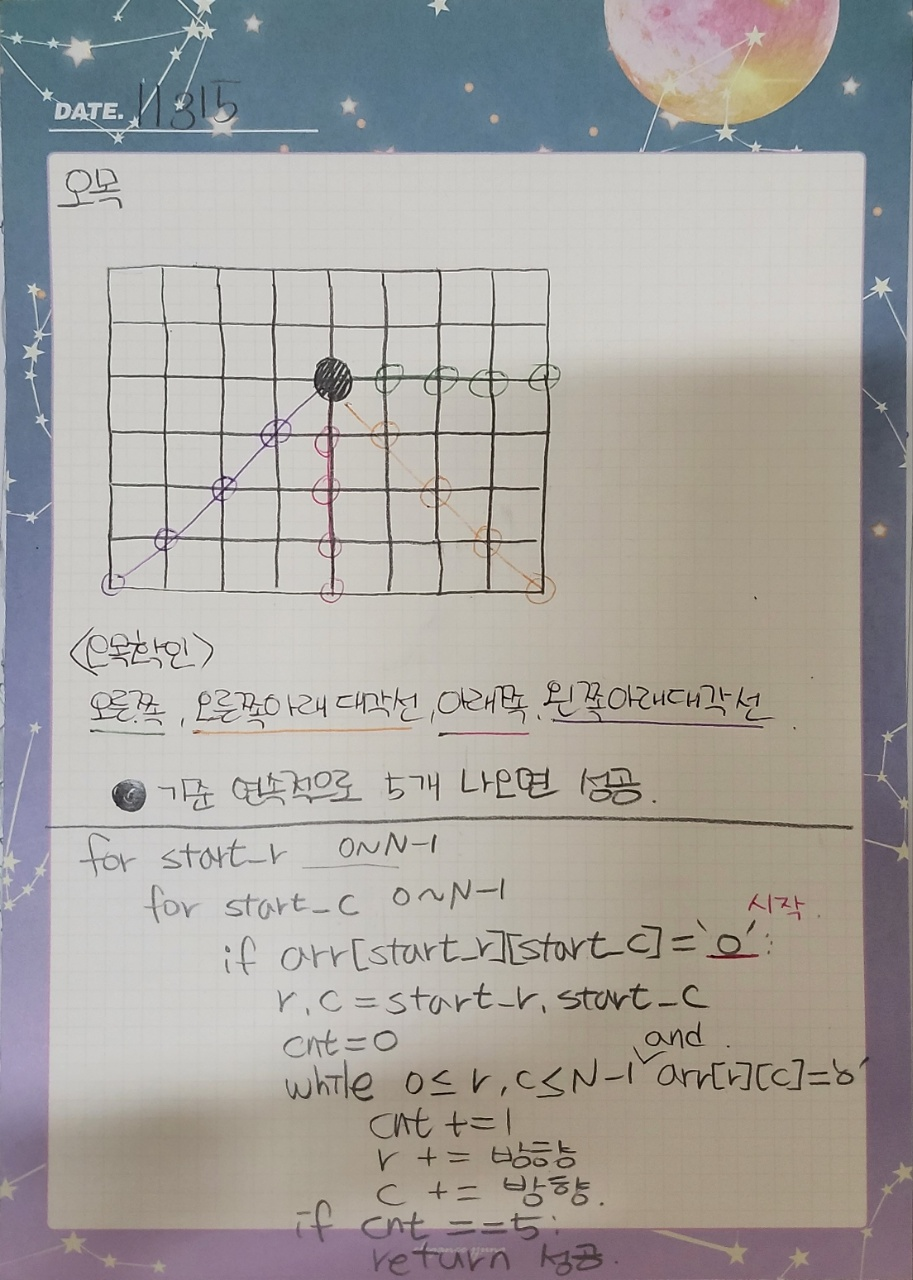 DATE. 11315
오목
<오목확인>
오른쪽, 오른쪽아래 대각선, 아래쪽, 왼쪽아래대각선
기준 연속적으로 5개 나오면 성공.
for start_r 0~N-1
for start_c 0~N-1
시작.
if arr[start_r][start_c]='o':
r, c = start_r, start_c
cnt=0
and
while 0≤ r, c ≤N-1 arr[r][c]='o'
cnt +=1
r += 방향
c += 방향.
if cnt ==5:
return 성공.